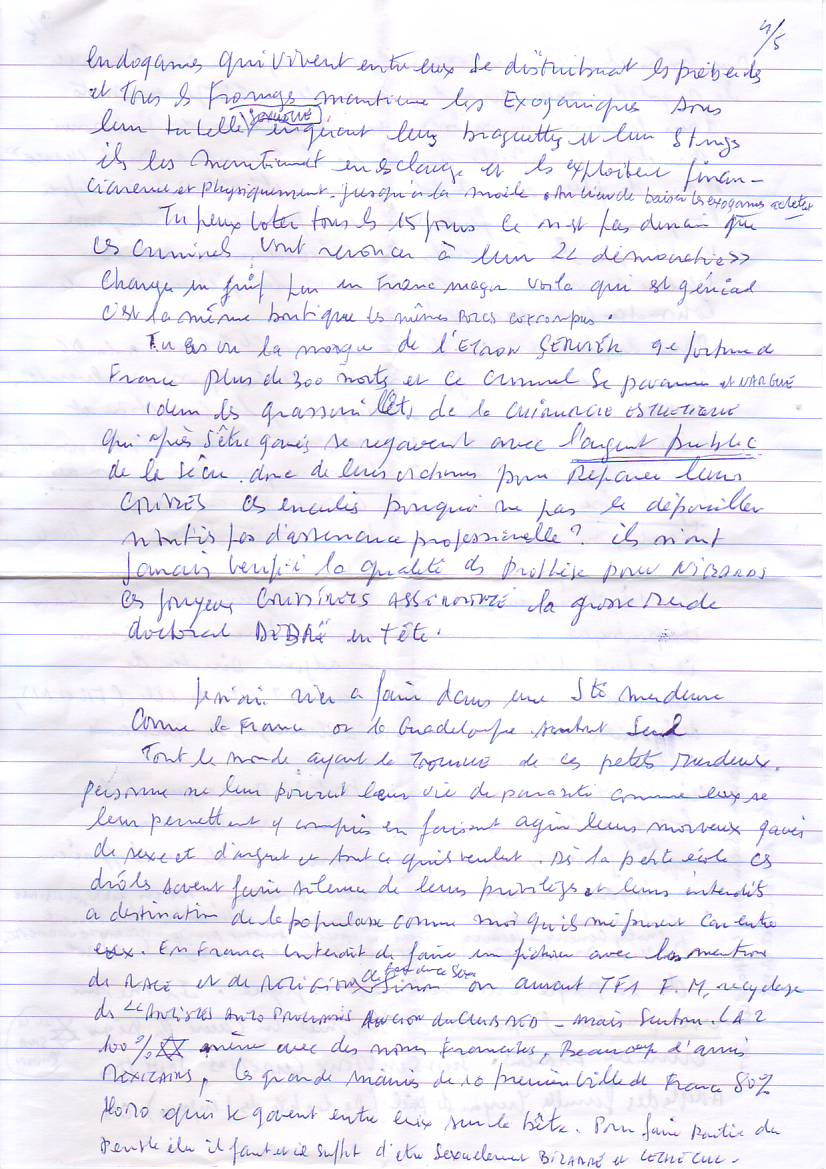 4/5
Endogames qui vivent entre eux se distribuent les prébendes
et tous les Fromages maintienne les Exogamiques sous
leur tutelle sexuelle leurs braguettes et leur Strings
ils les maintiennent en esclavage et les exploitent finan-
cièrement et physiquement jusqu'à la moële. Au lieu de baiser les exogames
Tu peux voter tous les 15 jours ce n'est pas demain que
ces criminels vont renoncer à leur << démocratie >>
Changer un juif par un Franc maçon voila qui est génial
c'est la même boutique les mêmes porcs corrompus.
Tu as vu la morgue de l'ETRON SERVIER 9e fortune de
France plus de 300 morts et ce criminel se pavane et NARGUE
idem des grassouillets de la CHIRURGIE ESTHETIQUE
qui après s'être gavés se regavent avec l'argent public
de la Sécu donc de leurs victimes pour Réparer leurs
CONNERIES ces enculés pourquoi ne pas les dépouiller
n'ont ils pas d'assurance professionelle? ils n'ont
jamais verifié la qualité des Prothèse pour NIBARDS
ces la grosse merde
doctoral DEBRÉ en tête.
je n'ai rien a faire dans une Sté merdeuse
Comme la France ou la Guadeloupe surtout Seul
Tout le monde ayant la TROUILLE de ces petits merdeux.
personne ne leur pourrit leur vie de parasite comme eux se
leur permettent y compris en faisant agir leurs morveux gavés
de sexe et d'argent et tout ce qu'ils veulent. Dès la petite école ces
drôles savent faire silence de leurs privilèges et leurs interdits
a destination de la populasse comme moi qu'ils méprisent car entre
eux. En France interdit de faire un fichier avec les mention
de RACE et de RELIGION sinon on aurait TF1 F.M. recyclage
des << ARTISTES AUTO PROCLAMÉS du CLUB MED - mais surtout. LA 2
100% ✡✡ même avec des noms Francaises, Beaucoup d'amis
MEXICAINS, les grande mairies de 10 première ville de France 80%
Homo qui se gavent entre eux sur la bête. Pour faire partie du
peuple élu il faut et il suffit d'etre sexuelement BIZARRE et LECHECUL.